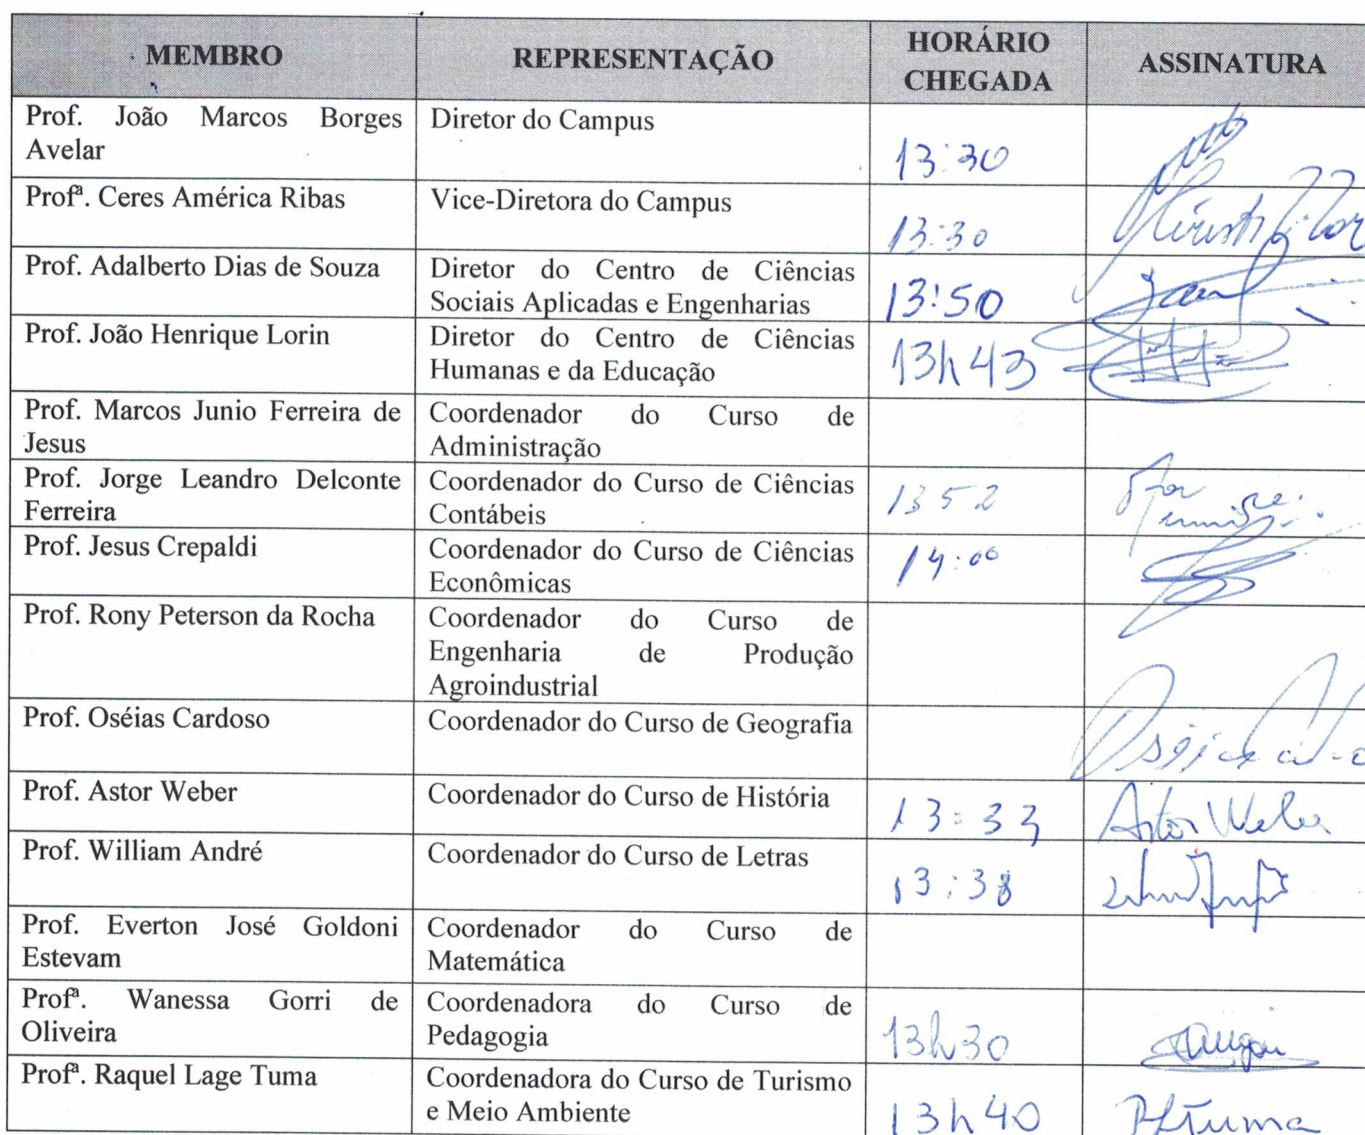 MEMBRO REPRESENTAÇÃO HORÁRIO CHEGADA ASSINATURA
Prof. João Marcos Borges Diretor do Campus
Avelar 13:30
Profª. Ceres América Ribas Vice-Diretora do Campus
13:30
Prof. Adalberto Dias de Souza Diretor do Centro de Ciências
Sociais Aplicadas e Engenharias 13:50
Prof. João Henrique Lorin Diretor do Centro de Ciências
Humanas e da Educação 13h43
Prof. Marcos Junio Ferreira de Coordenador do Curso de
Jesus Administração
Prof. Jorge Leandro Delconte Coordenador do Curso de Ciências
Ferreira Contábeis 13 52
Prof. Jesus Crepaldi Coordenador do Curso de Ciências 14:00
Econômicas
Prof. Rony Peterson da Rocha Coordenador do Curso de
Engenharia de Produção
Agroindustrial
Prof. Oséias Cardoso Coordenador do Curso de Geografia
Prof. Astor Weber Coordenador do Curso de História 13:33 Astor Weber
Prof. William André Coordenador do Curso de Letras
13:38
Prof. Everton José Goldoni Coordenador do Curso de
Estevam Matemática
Profª. Wanessa Gorri de Coordenadora do Curso de
Oliveira Pedagogia 13h30
Profª. Raquel Lage Tuma Coordenadora do Curso de Turismo
e Meio Ambiente 13h40 RLTuma